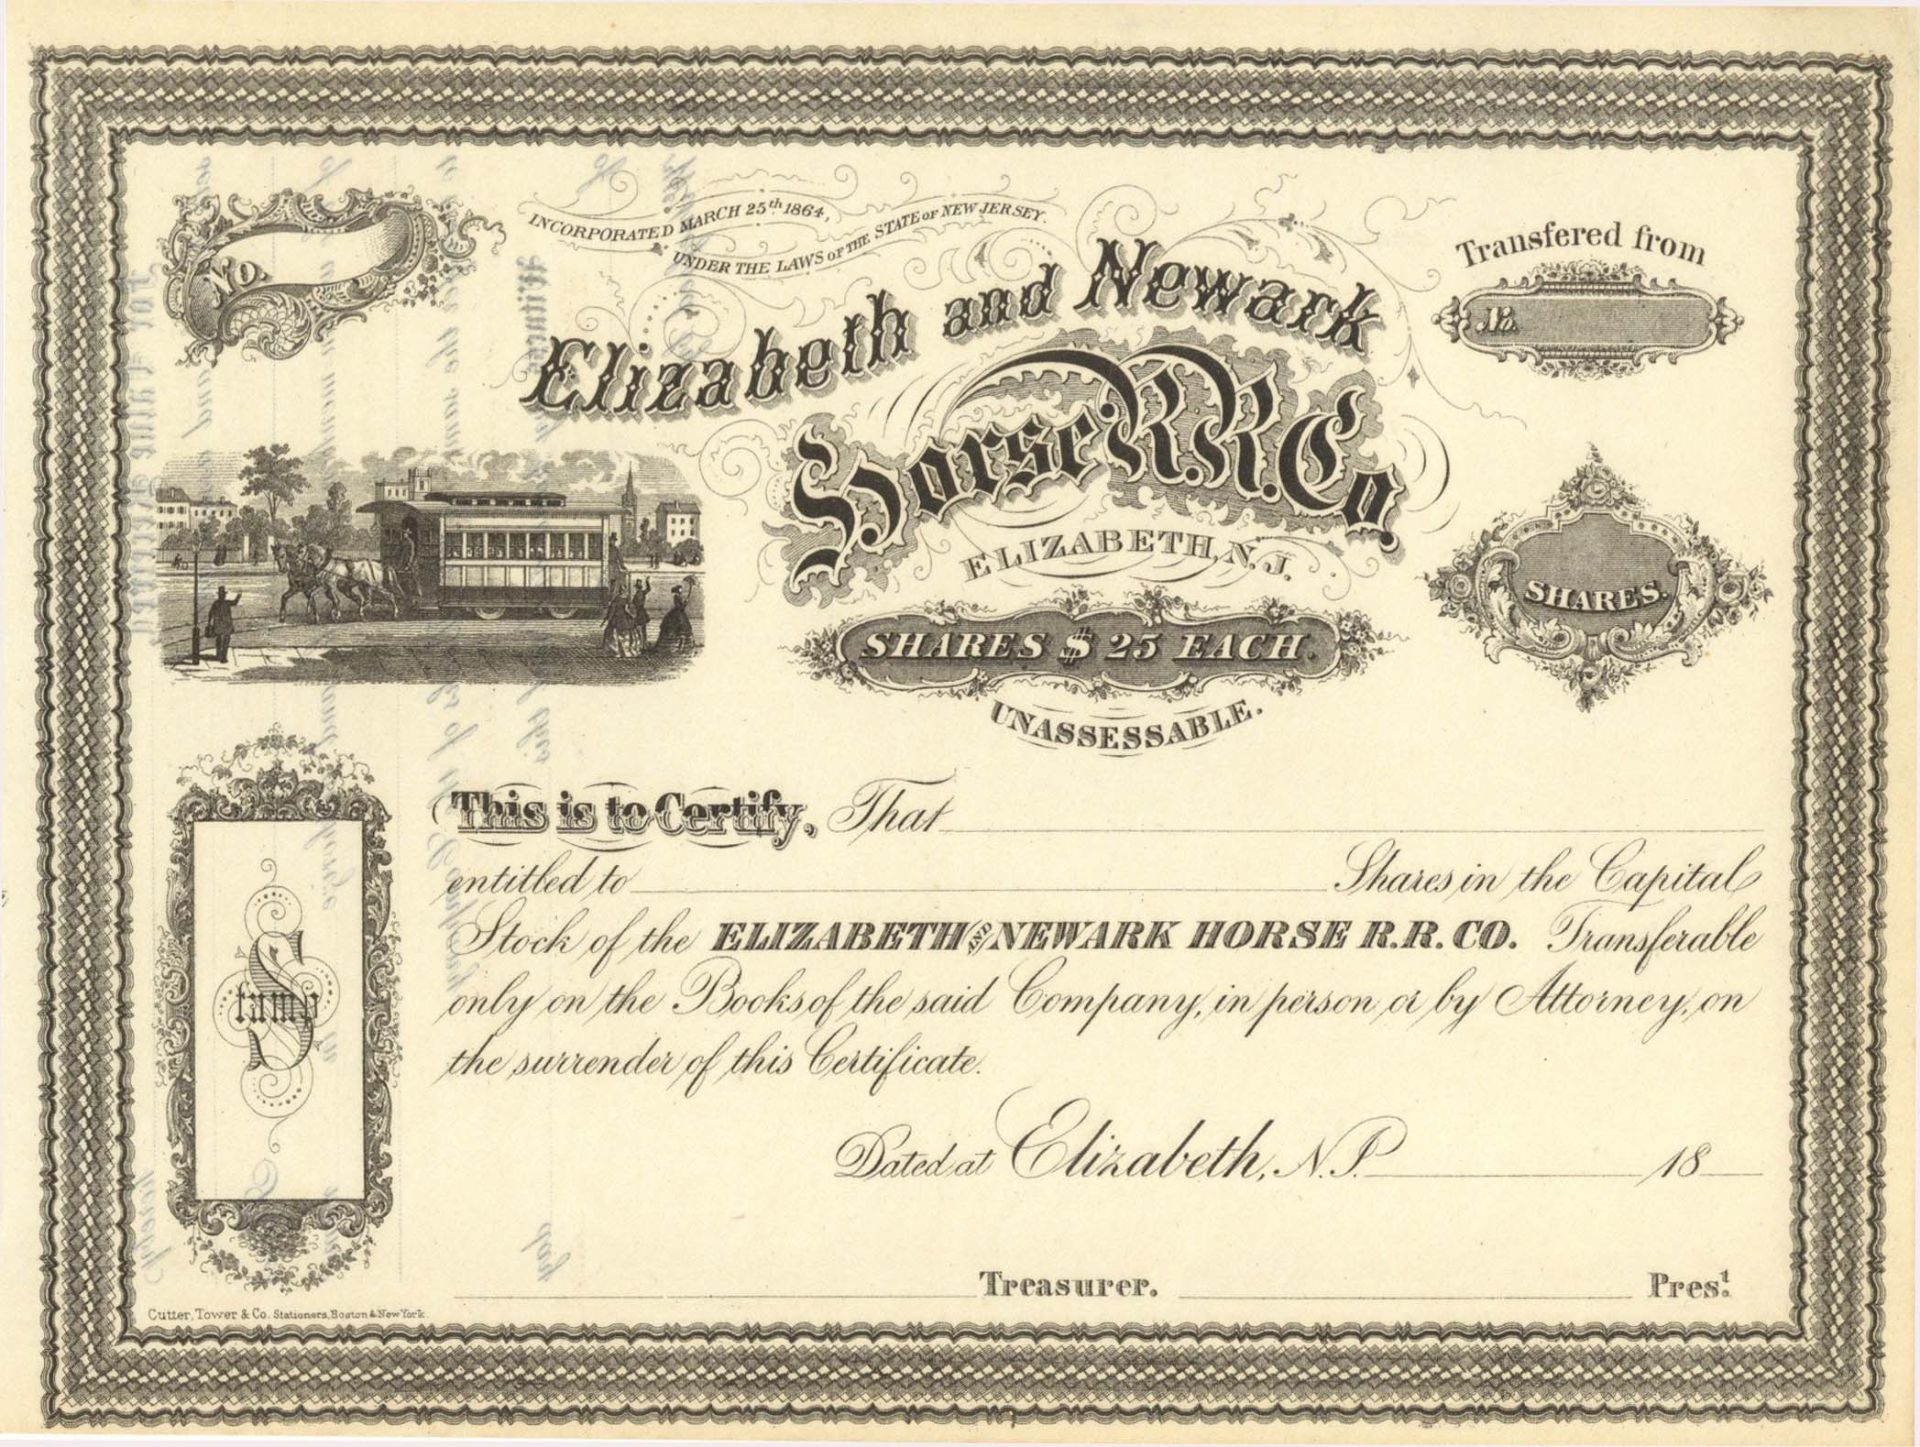 No.
INCORPORATED MARCH 25th 1864,
UNDER THE LAWS OF THE STATE OF NEW JERSEY.
Elizabeth and Newark
Horse R.R. Co.
ELIZABETH, N.J.
SHARES $ 25 EACH.
UNASSESSABLE.
Transfered from
No.
SHARES.
This is to Certify, That
entitled to Shares in the Capital
Stock of the ELIZABETH AND NEWARK HORSE R.R. CO. Transferable
only on the Books of the said Company, in person or by Attorney, on
the surrender of this Certificate.
Stamp
Dated at Elizabeth, N.J. 18
Treasurer. Prest.
Cutter, Tower & Co. Stationers, Boston & New York.